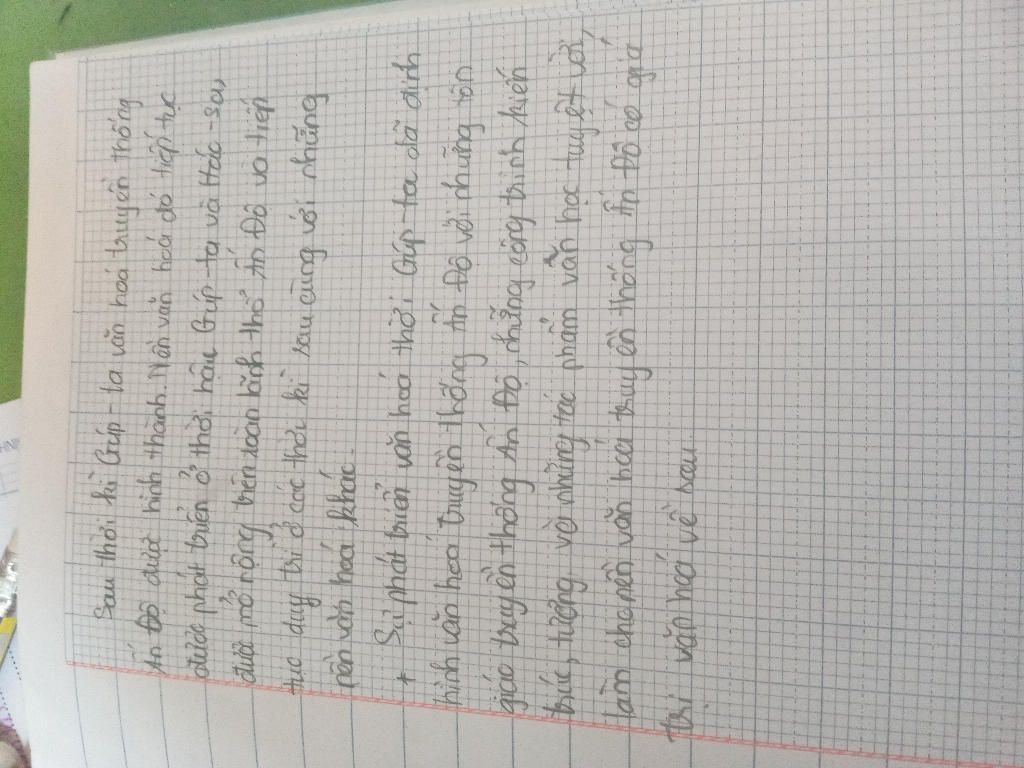 Sau thời kì Gúp-ta văn hoá truyền thống
Ấn Độ được hình thành. Nền văn hoá đó tiếp tục
được phát triển ở thời hậu Gúp-ta và Hác-sa,
được mở rộng trên toàn lãnh thổ Ấn Độ và tiếp
tục duy trì ở các thời kì sau cùng với những
nền văn hoá khác.
+ Sự phát triển văn hoá thời Gúp-ta đã định
hình văn hoá truyền thống Ấn Độ với những tôn
giáo truyền thống Ấn Độ, những công trình kiến
trúc, tượng, và những tác phẩm văn học tuyệt vời,
làm cho nền văn hoá truyền thống Ấn Độ có giá
trị văn hoá về sau.